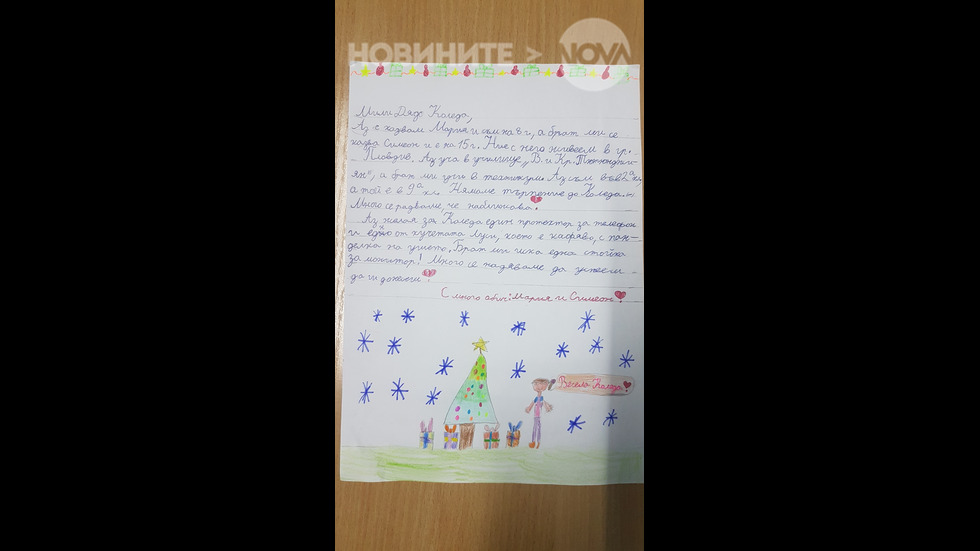 НОВИНИТЕ > NOVA
Мили Дядо Коледа,
Аз се казвам Мария и съм на 8 г, а брат ми се
казва Симеон и е на 15 г. Ние с него живеем в гр.
Пловдив. Аз уча в училище „В. и Кр.
ян", а брат ми учи в техникум. Аз съм във 2ª кл,
а той е в 9ª кл. Нямаме търпение до Коледа.
Много се радваме, че наближава.
Аз желая за Коледа един протектор за телефон
и едно от кучетата Луси, което е кафяво, с пан-
делка на ушето. Брат ми иска една стойка
за монитор! Много се надяваме да успееш
да ги донесеш!
С много обич: Мария и Симеон
Весела Коледа!